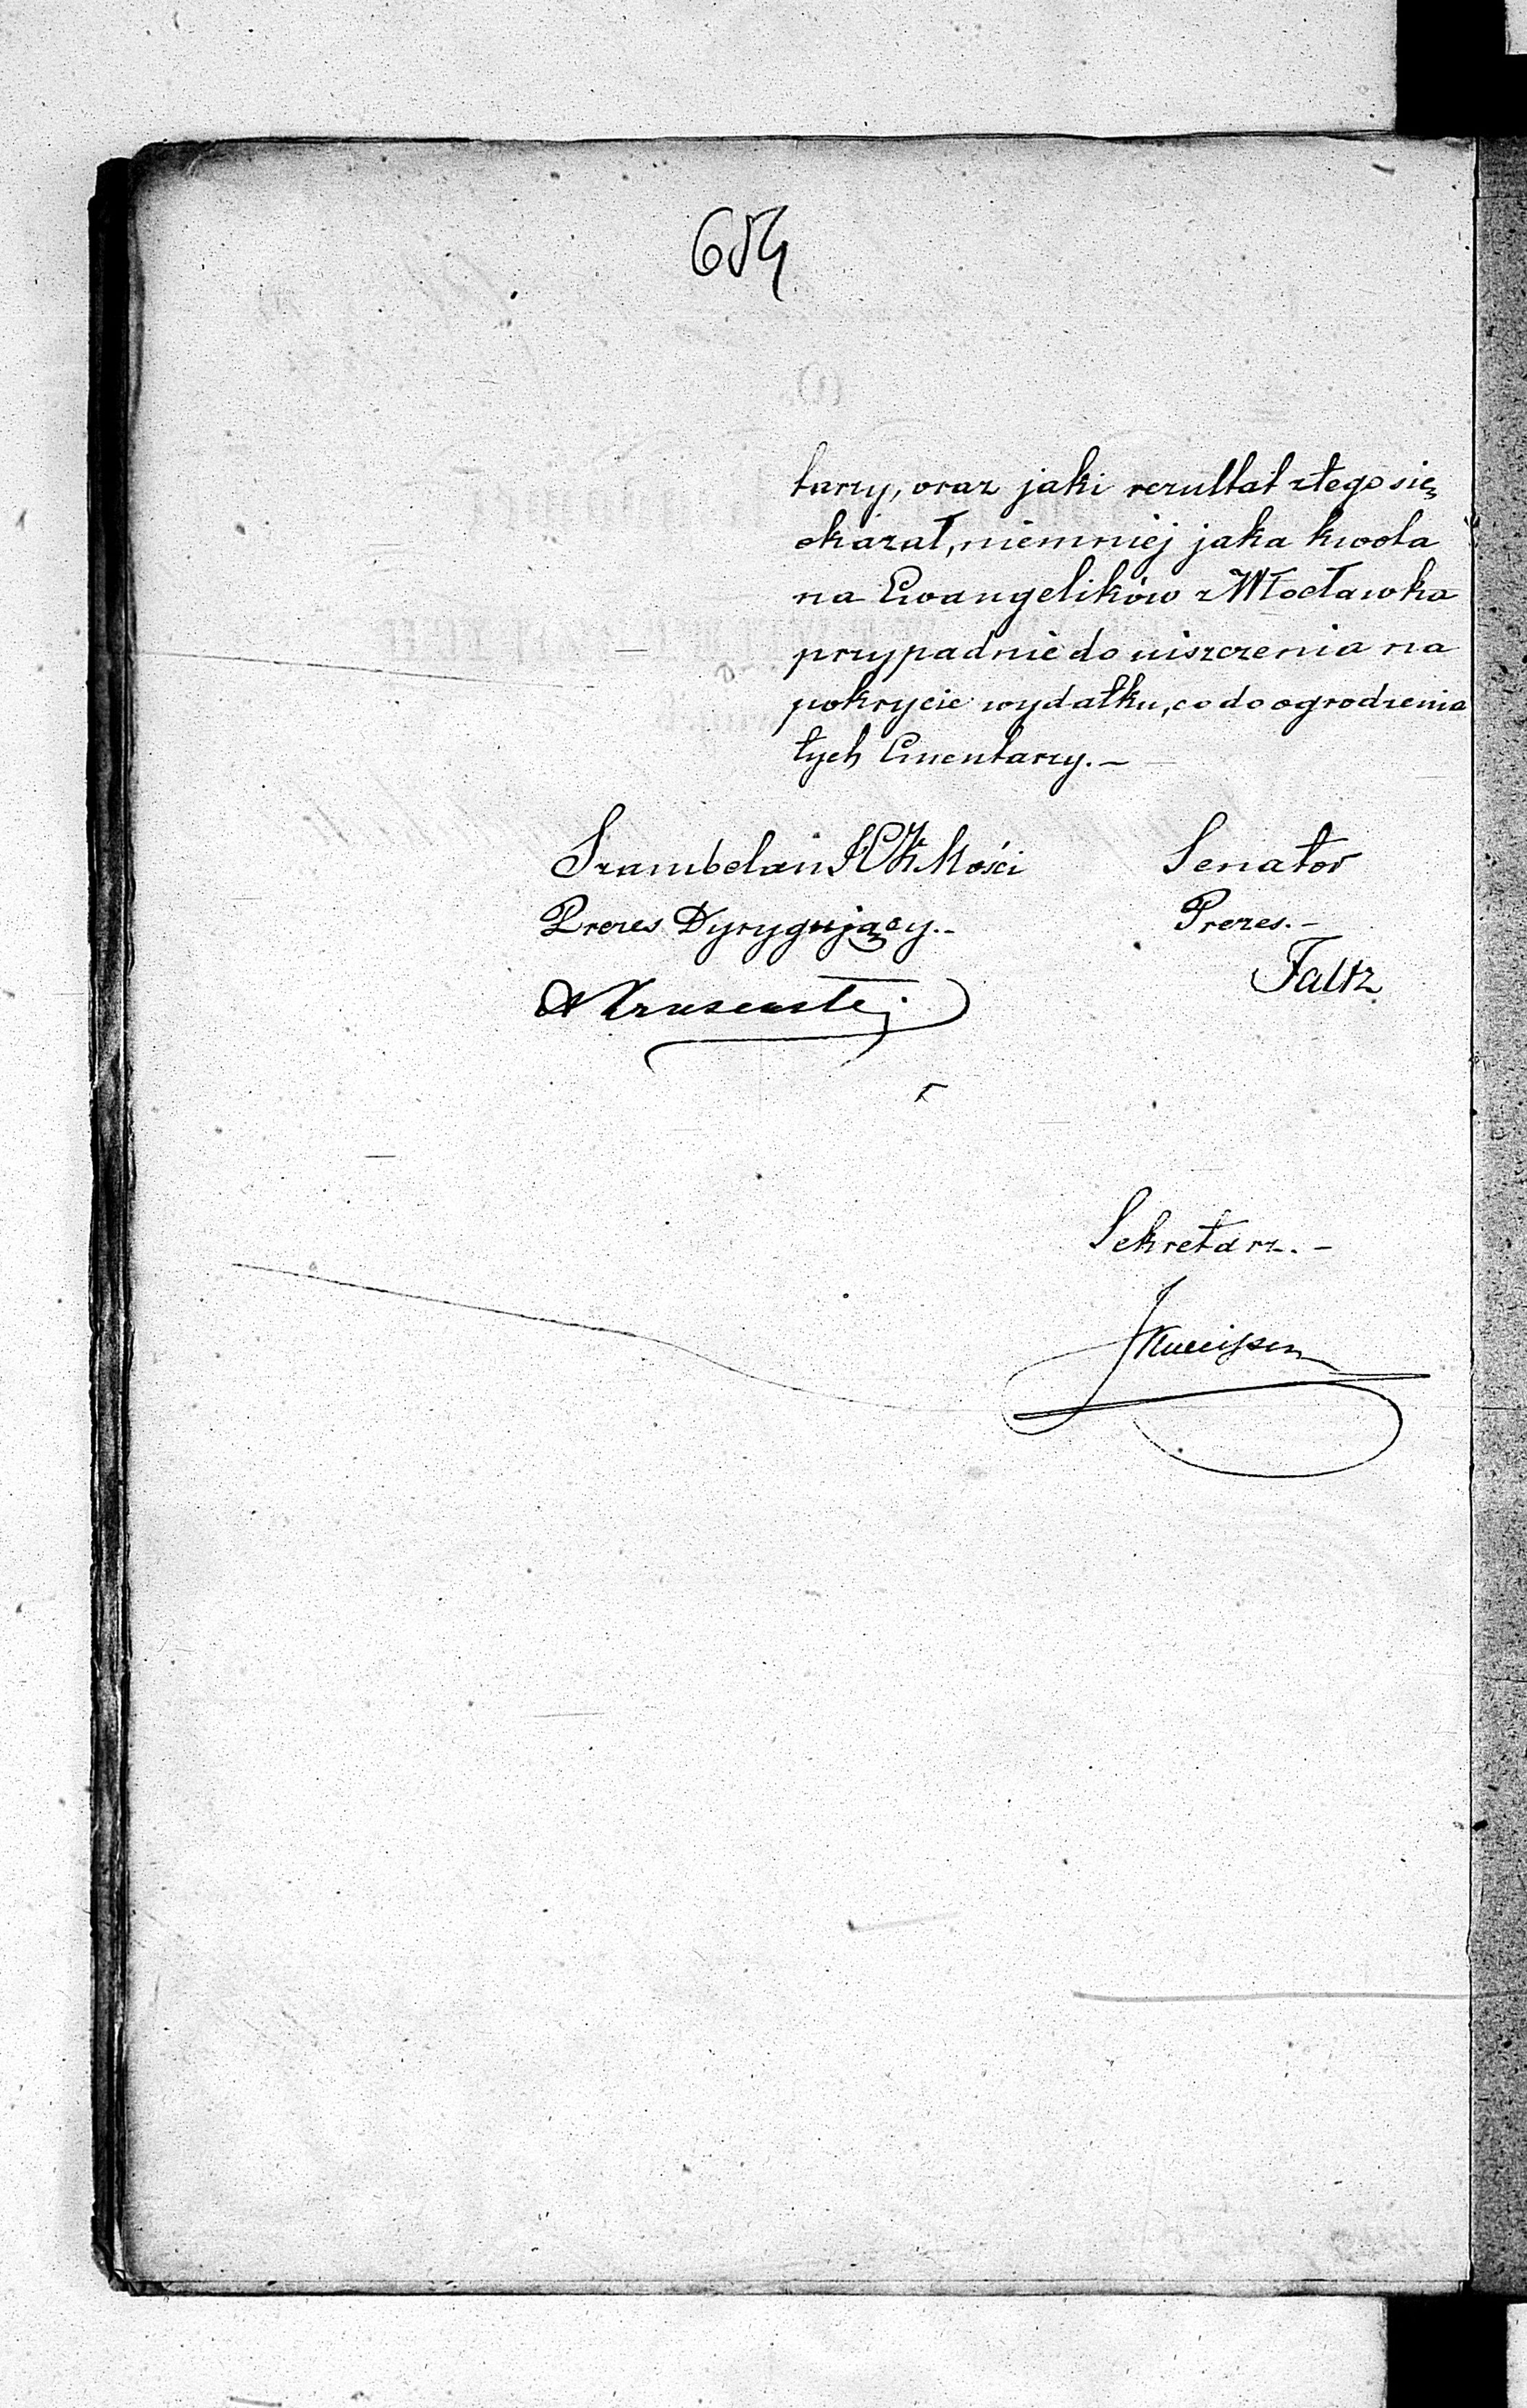 654
tarzy, oraz jaki rezultat z tego się
okazał, niemniej jaka kwota
na Ewangelików z Włocławka
przypadnie do uiszczenia na
pokrycie wydatku, co do ogrodzenia
tych Cmentarzy.—
Szambelan JCKMości
Senator
Prezes Dyrygujący.-
Prezes.-
Faltz
Sekretarz.-